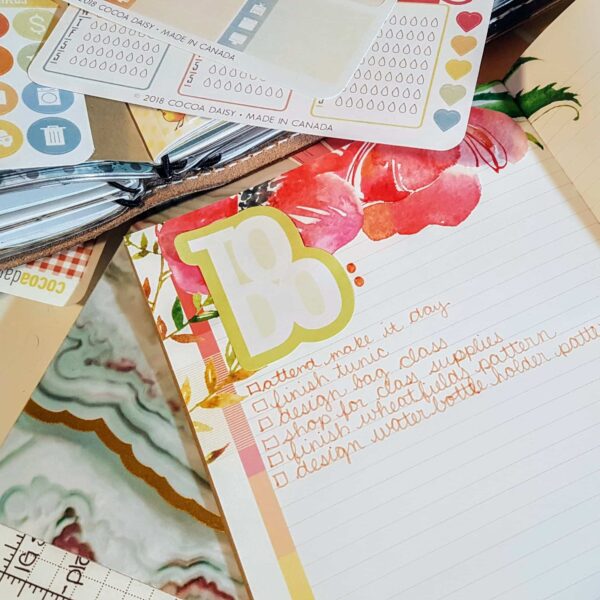 2018 COCOA DAISY • MADE IN CANADA
© 2018 COCOA DAISY • MADE IN CANADA
cocoada
TO
DO
attend make it day
finish tunic
design bag class
shop for class supplies
finish wheatfields pattern
design water bottle holder patte